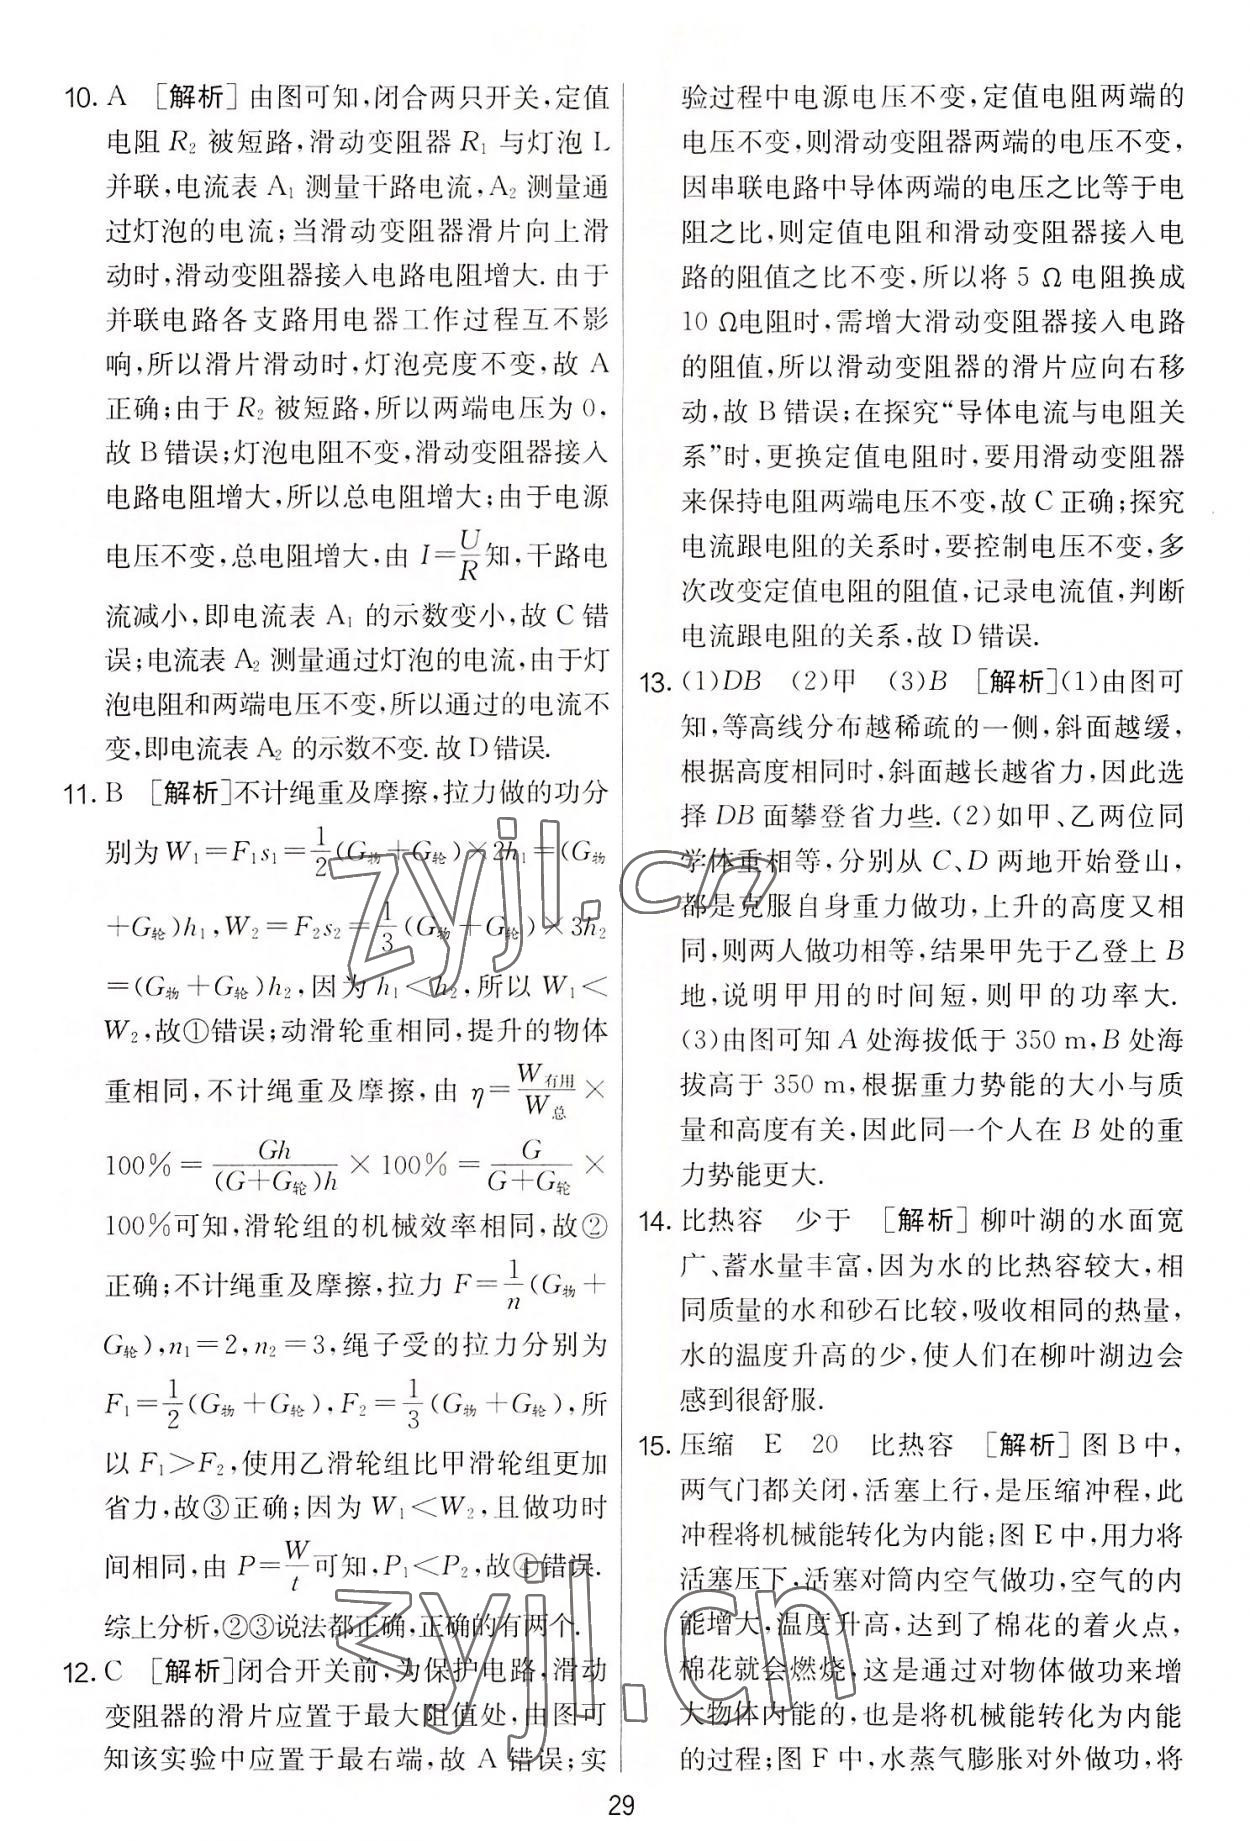 10. A [解析] 由图可知,闭合两只开关,定值
电阻 R₂ 被短路,滑动变阻器 R₁ 与灯泡 L
并联,电流表 A₁ 测量干路电流,A₂ 测量通
过灯泡的电流;当滑动变阻器滑片向上滑
动时,滑动变阻器接入电路电阻增大. 由于
并联电路各支路用电器工作过程互不影
响,所以滑片滑动时,灯泡亮度不变,故 A
正确;由于 R₂ 被短路,所以两端电压为 0,
故 B 错误;灯泡电阻不变,滑动变阻器接入
电路电阻增大,所以总电阻增大;由于电源
电压不变,总电阻增大,由 I=U/R知,干路电
流减小,即电流表 A₁ 的示数变小,故 C 错
误;电流表 A₂ 测量通过灯泡的电流,由于灯
泡电阻和两端电压不变,所以通过的电流不
变,即电流表 A₂ 的示数不变. 故 D 错误.
11. B [解析]不计绳重及摩擦,拉力做的功分
别为 W₁=F₁s₁=1/2(G物+G轮)×2h₁=(G物
+G轮)h₁,W₂=F₂s₂=1/3(G物+G轮)×3h₂
=(G物+G轮)h₂,因为 h₁<h₂,所以 W₁<
W₂,故①错误;动滑轮重相同,提升的物体
重相同,不计绳重及摩擦,由 η=W有用/W总×
100%=Gh/(G+G轮)h×100%=G/G+G轮×
100%可知,滑轮组的机械效率相同,故②
正确;不计绳重及摩擦,拉力 F=1/n(G物+
G轮),n₁=2,n₂=3,绳子受的拉力分别为
F₁=1/2(G物+G轮),F₂=1/3(G物+G轮),所
以 F₁>F₂,使用乙滑轮组比甲滑轮组更加
省力,故③正确;因为 W₁<W₂,且做功时
间相同,由 P=W/t可知,P₁<P₂,故④错误.
综上分析,②③说法都正确,正确的有两个.
12. C [解析]闭合开关前,为保护电路,滑动
变阻器的滑片应置于最大阻值处,由图可
知该实验中应置于最右端,故 A 错误;实
验过程中电源电压不变,定值电阻两端的
电压不变,则滑动变阻器两端的电压不变,
因串联电路中导体两端的电压之比等于电
阻之比,则定值电阻和滑动变阻器接入电
路的阻值之比不变,所以将 5 Ω 电阻换成
10 Ω电阻时,需增大滑动变阻器接入电路
的阻值,所以滑动变阻器的滑片应向右移
动,故 B 错误;在探究“导体电流与电阻关
系”时,更换定值电阻时,要用滑动变阻器
来保持电阻两端电压不变,故 C 正确;探究
电流跟电阻的关系时,要控制电压不变,多
次改变定值电阻的阻值,记录电流值,判断
电流跟电阻的关系,故 D 错误.
13. (1)DB (2)甲 (3)B [解析](1)由图可
知,等高线分布越稀疏的一侧,斜面越缓,
根据高度相同时,斜面越长越省力,因此选
择 DB 面攀登省力些. (2)如甲、乙两位同
学体重相等,分别从 C、D 两地开始登山,
都是克服自身重力做功,上升的高度又相
同,则两人做功相等,结果甲先于乙登上 B
地,说明甲用的时间短,则甲的功率大.
(3)由图可知 A 处海拔低于 350 m,B 处海
拔高于 350 m,根据重力势能的大小与质
量和高度有关,因此同一个人在 B 处的重
力势能更大.
14. 比热容 少于 [解析] 柳叶湖的水面宽
广、蓄水量丰富,因为水的比热容较大,相
同质量的水和砂石比较,吸收相同的热量,
水的温度升高的少,使人们在柳叶湖边会
感到很舒服.
15. 压缩 E 20 比热容 [解析] 图 B 中,
两气门都关闭,活塞上行,是压缩冲程,此
冲程将机械能转化为内能;图 E 中,用力将
活塞压下,活塞对筒内空气做功,空气的内
能增大,温度升高,达到了棉花的着火点,
棉花就会燃烧,这是通过对物体做功来增
大物体内能的,也是将机械能转化为内能
的过程;图 F 中,水蒸气膨胀对外做功,将
29
zyjl.cn
zyjl.cn